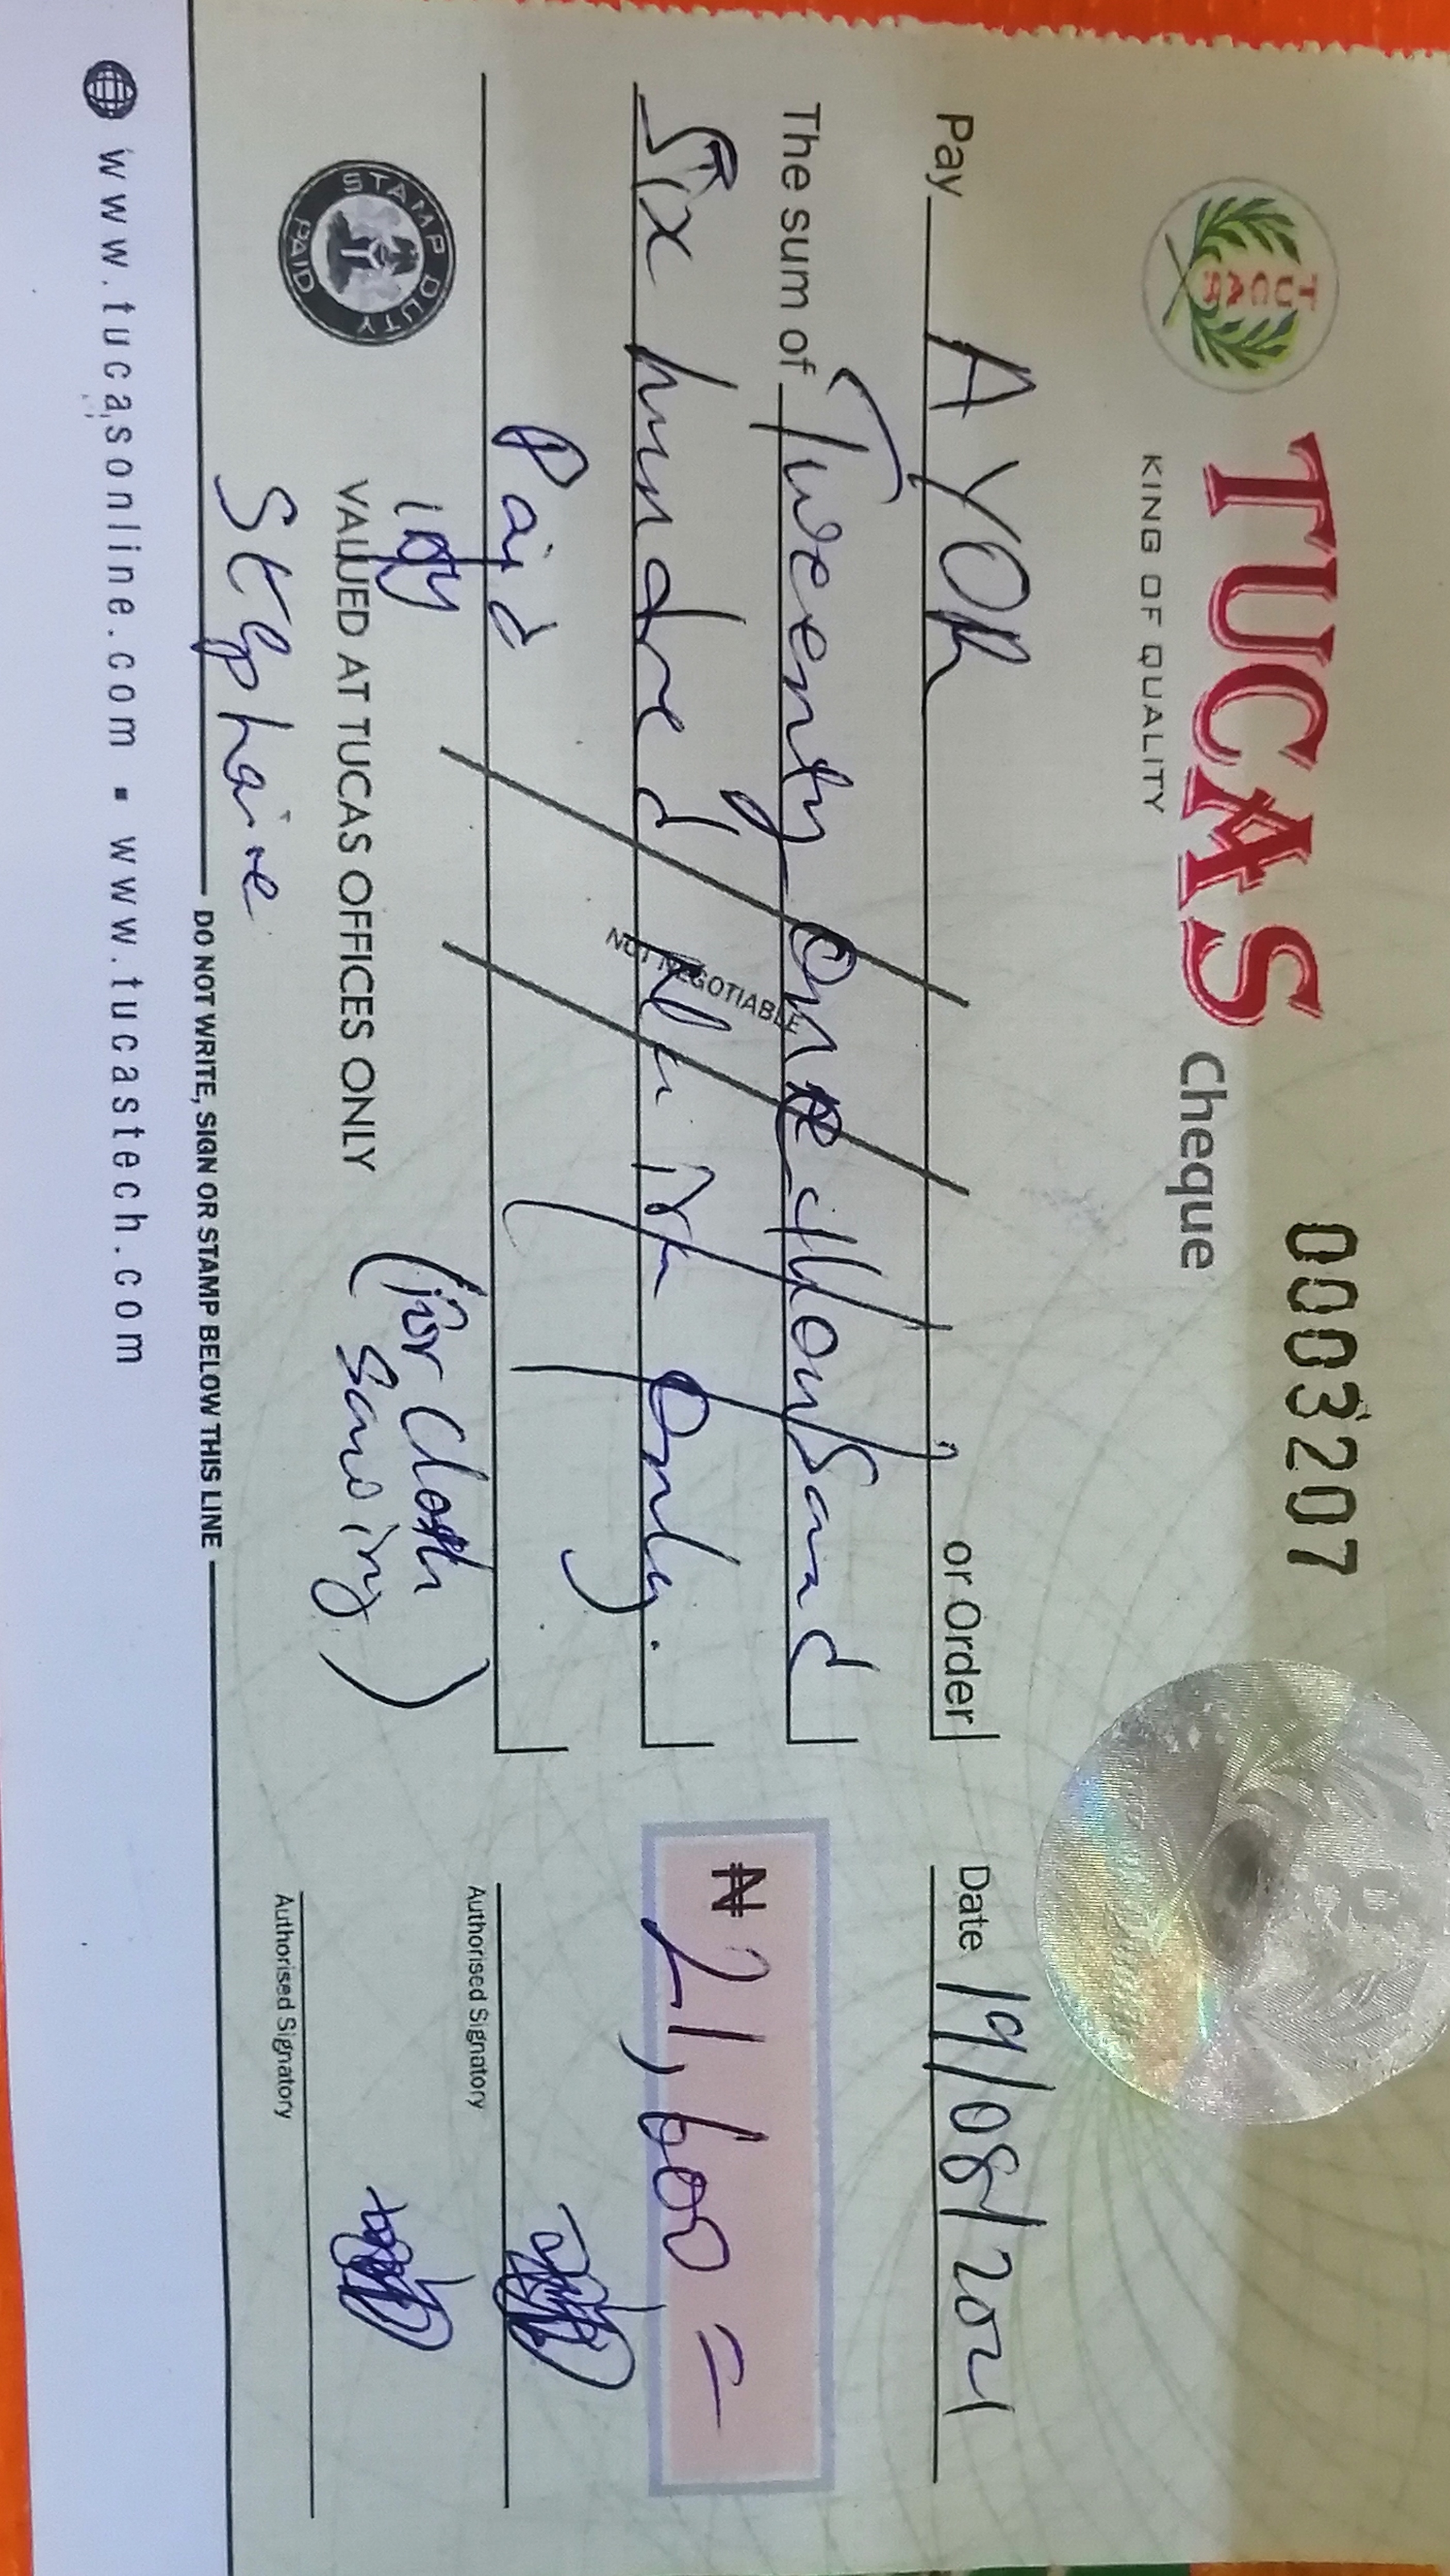 0003207
TUCAS Cheque
KING OF QUALITY
TUCAS
Date 19/08/2021
Pay AYOR or Order
The sum of Twenty One thousand
Six hundred Naira Only.
₦ 21,600 =
NOT NEGOTIABLE
Paid
by
Stephanie
(for Cloth
Sawing)
STAMP DUTY PAID
VALUED AT TUCAS OFFICES ONLY
Authorised Signatory
Authorised Signatory
DO NOT WRITE, SIGN OR STAMP BELOW THIS LINE
www.tucasonline.com ▪ www.tucastech.com